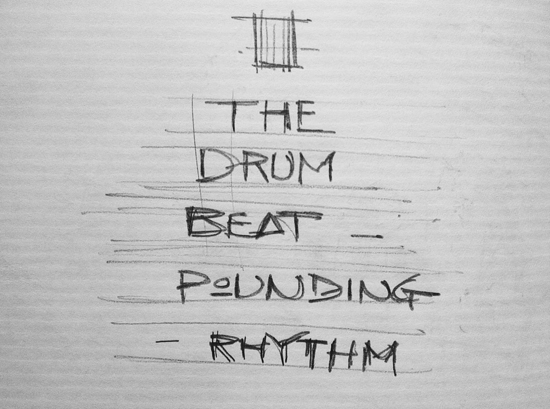 THE
DRUM
BEAT –
POUNDING
– RHYTHM